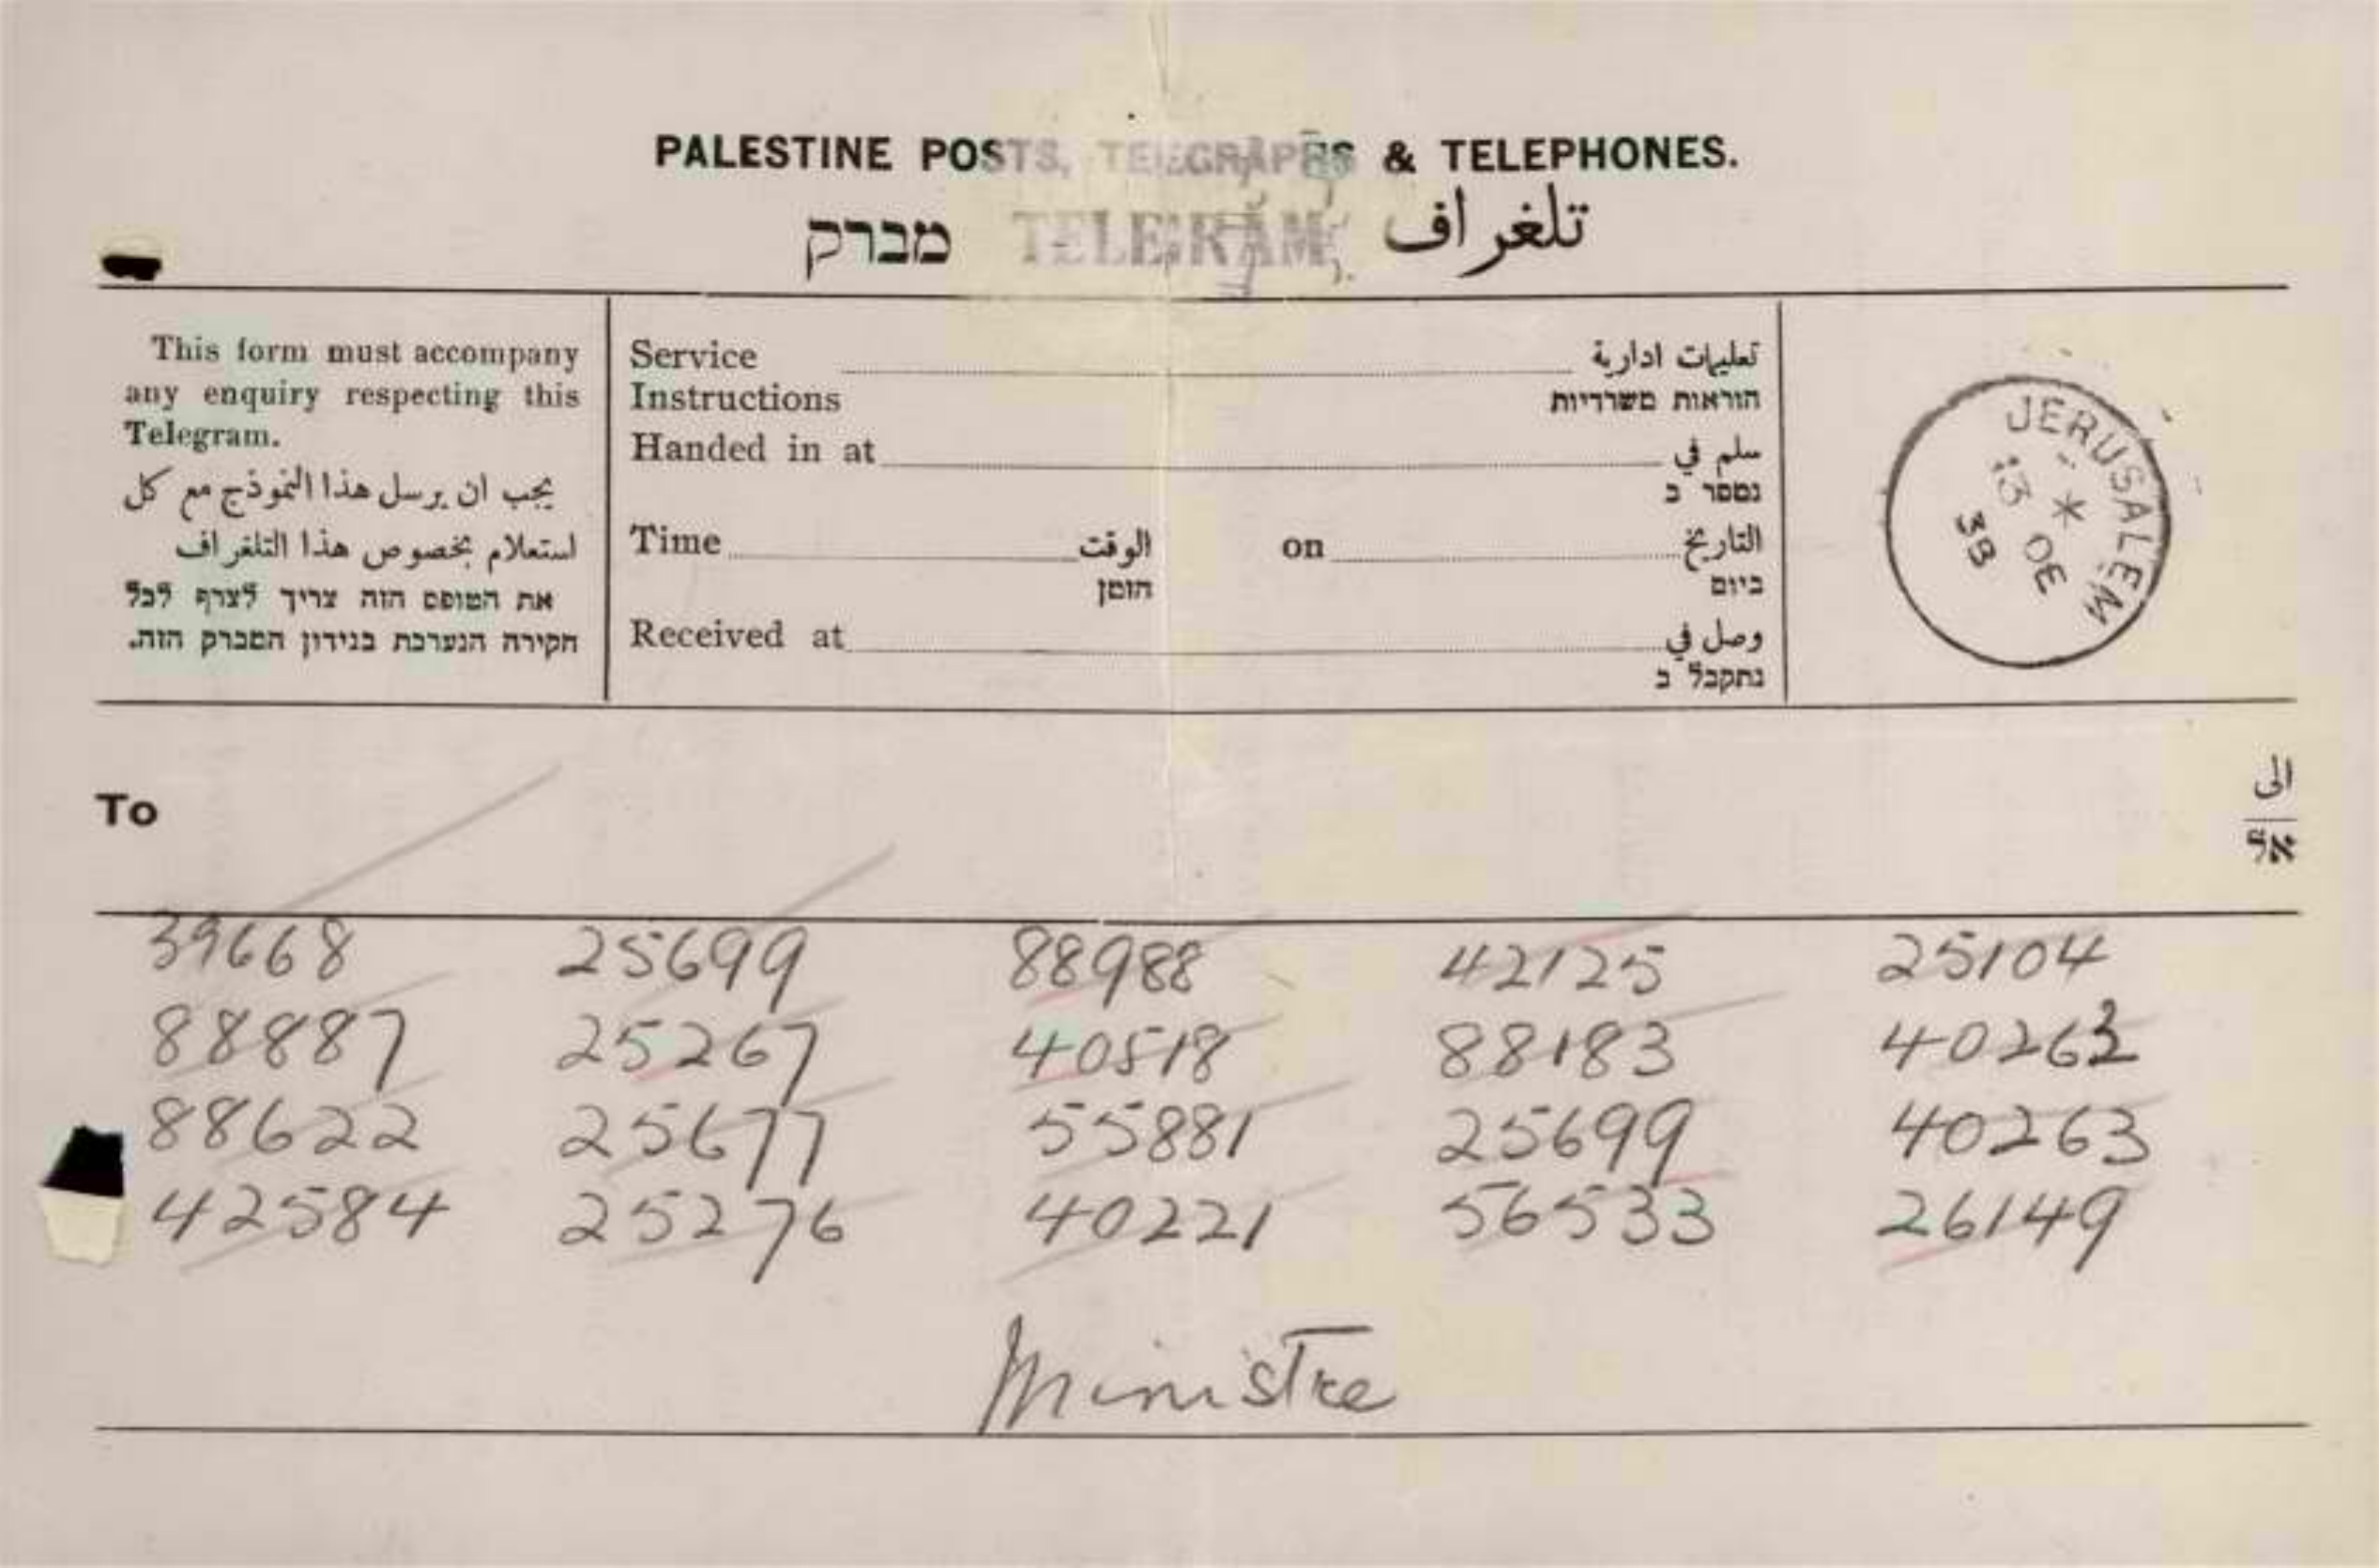 PALESTINE POSTS, TELEGRAPHS & TELEPHONES.
מברק TELEGRAM تلغراف
This form must accompany
any enquiry respecting this
Telegram.
يجب ان يرسل هذا النموذج مع كل
استعلام بخصوص هذا التلغراف
את הטופס הזה צריך לצרף לכל
חקירה הנערכת בנידון המברק הזה.
Service تعليمات ادارية
Instructions הוראות משרדיות
Handed in at سلم في
נמסר ב
Time الوقت on التاريخ
הזמן ביום
Received at وصل في
נתקבל ב
JERUSALEM
13 DE
38
To الى
אל
39668 25699 88988 42125 25104
88887 25267 40518 88183 40263
88622 25677 55881 25699 40263
42584 25276 40221 56533 26149
Ministre